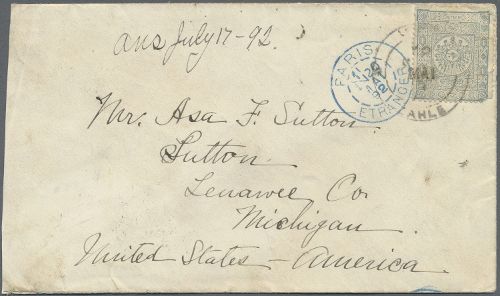 ans July 17-92.
PARIS
ETRANGER
MAI
AHLE
Mr. Asa F. Sutton
Sutton
Lenawee Co.
Michigan
United States - America.